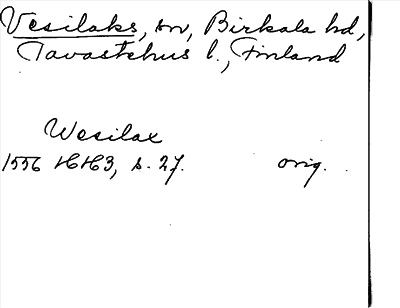 Vesilaks, sn, Birkala hd,
Tavastehus l., Finland
Wesilax
1556 HH3, s. 27. orig.